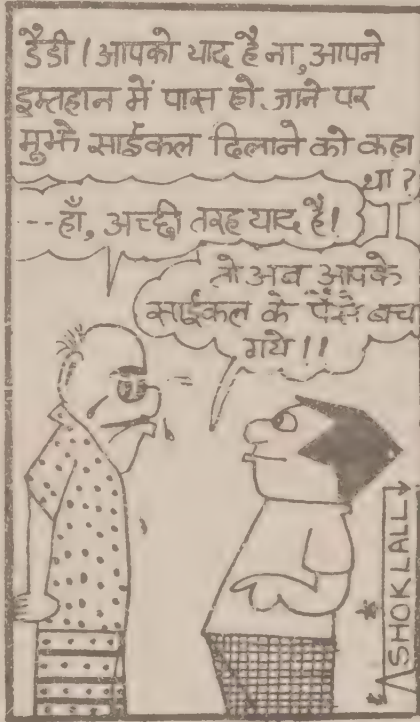 डैडी! आपको याद है ना, आपने
इम्तहान में पास हो जाने पर
मुझे साईकल दिलाने को कहा
था?
--- हाँ, अच्छी तरह याद है!
तो अब आपके
साईकल के पैसे बच
गये!!
ASHOK LALL